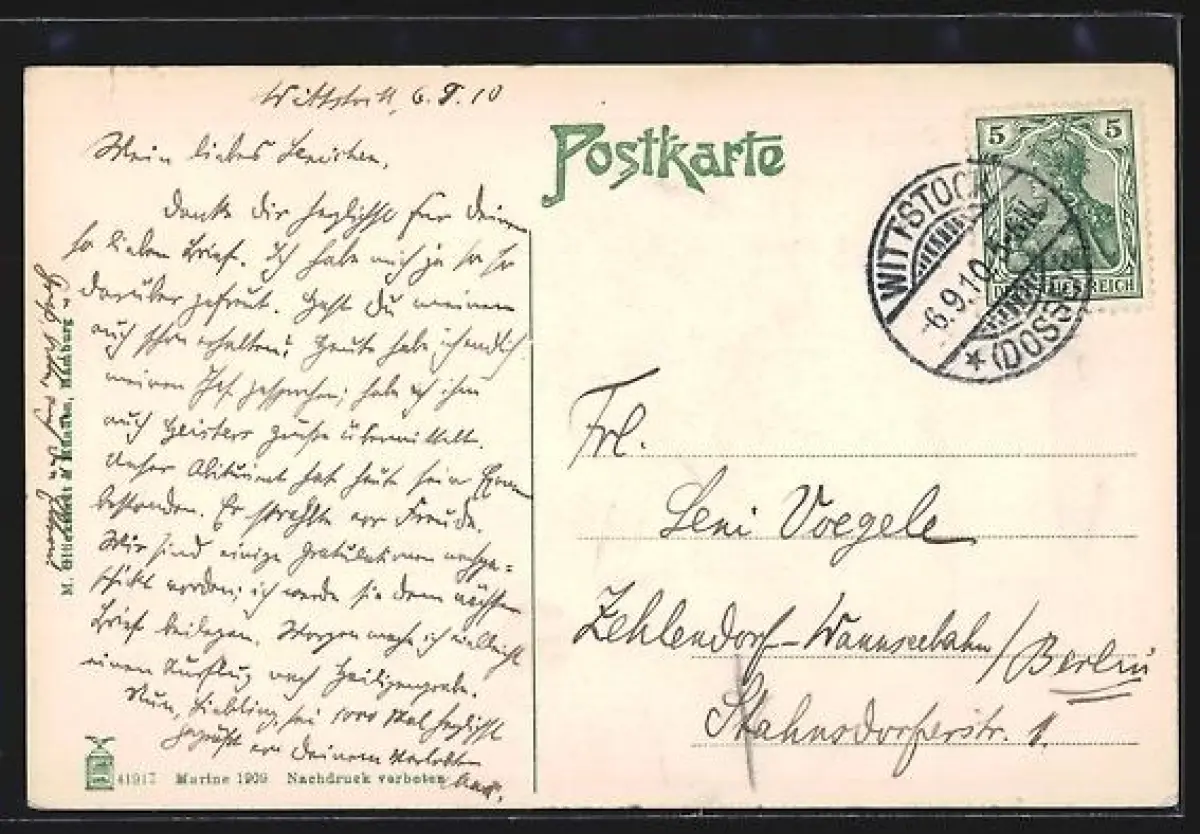 Wittstock, 6.9.10
Mein liebes Lenichen,
Danke Dir herzlichst für Deinen
so lieben Brief. Ich habe mich ja so sehr
darüber gefreut. Hast Du meinen
auch schon erhalten? Heute habe ich endlich
meinen gesprochen; habe ich ihm
auch Grüße übermittelt.
Unser Abiturient hat heute sein Examen
bestanden. Er strahlte vor Freude.
Wir sind einige Gratulationen nachge=
schickt worden; ich werde sie dem nächsten
Brief beilegen. Morgen mache ich vielleicht
einen Ausflug nach Heiligengrabe.
Nun, Liebling, sei 1000 Mal herzlichst
geküßt von Deinem Verlobten
M. Glückstadt & Münden, Hamburg
41917 Marine 1909 Nachdruck verboten
Postkarte
5 5
DEUTSCHES REICH
WITTSTOCK
-6.9.10.5-6N.
* (DOSSE)
Frl.
Leni Voegele
Zehlendorf-Wannseebahn/Berlin
Stahnsdorferstr. 1.